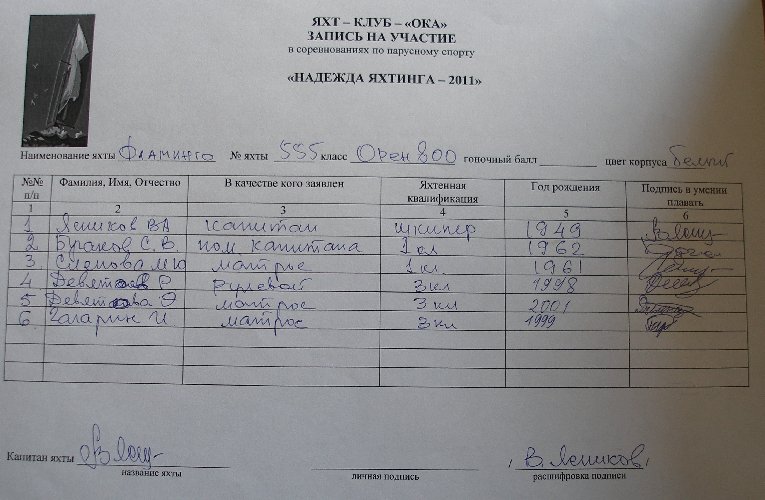 ЯХТ – КЛУБ – «ОКА»
ЗАПИСЬ НА УЧАСТИЕ
в соревнованиях по парусному спорту
«НАДЕЖДА ЯХТИНГА – 2011»
Наименование яхты Фламинго № яхты 555 класс Open 800 гоночный балл цвет корпуса белый
№№ п/п Фамилия, Имя, Отчество В качестве кого заявлен Яхтенная квалификация Год рождения Подпись в умении плавать
1 2 3 4 5 6
1 Ясников ВА капитан шкипер 1949
2 С.В. пом капитана 1 кл 1962
3 матрос 1 кл. 1961
4 Р рулевой 3 кл 1998
5 матрос 3 кл 2001
6 Гагарин И. матрос 3 кл 1999
Капитан яхты
название яхты личная подпись расшифровка подписи
В. Ясников